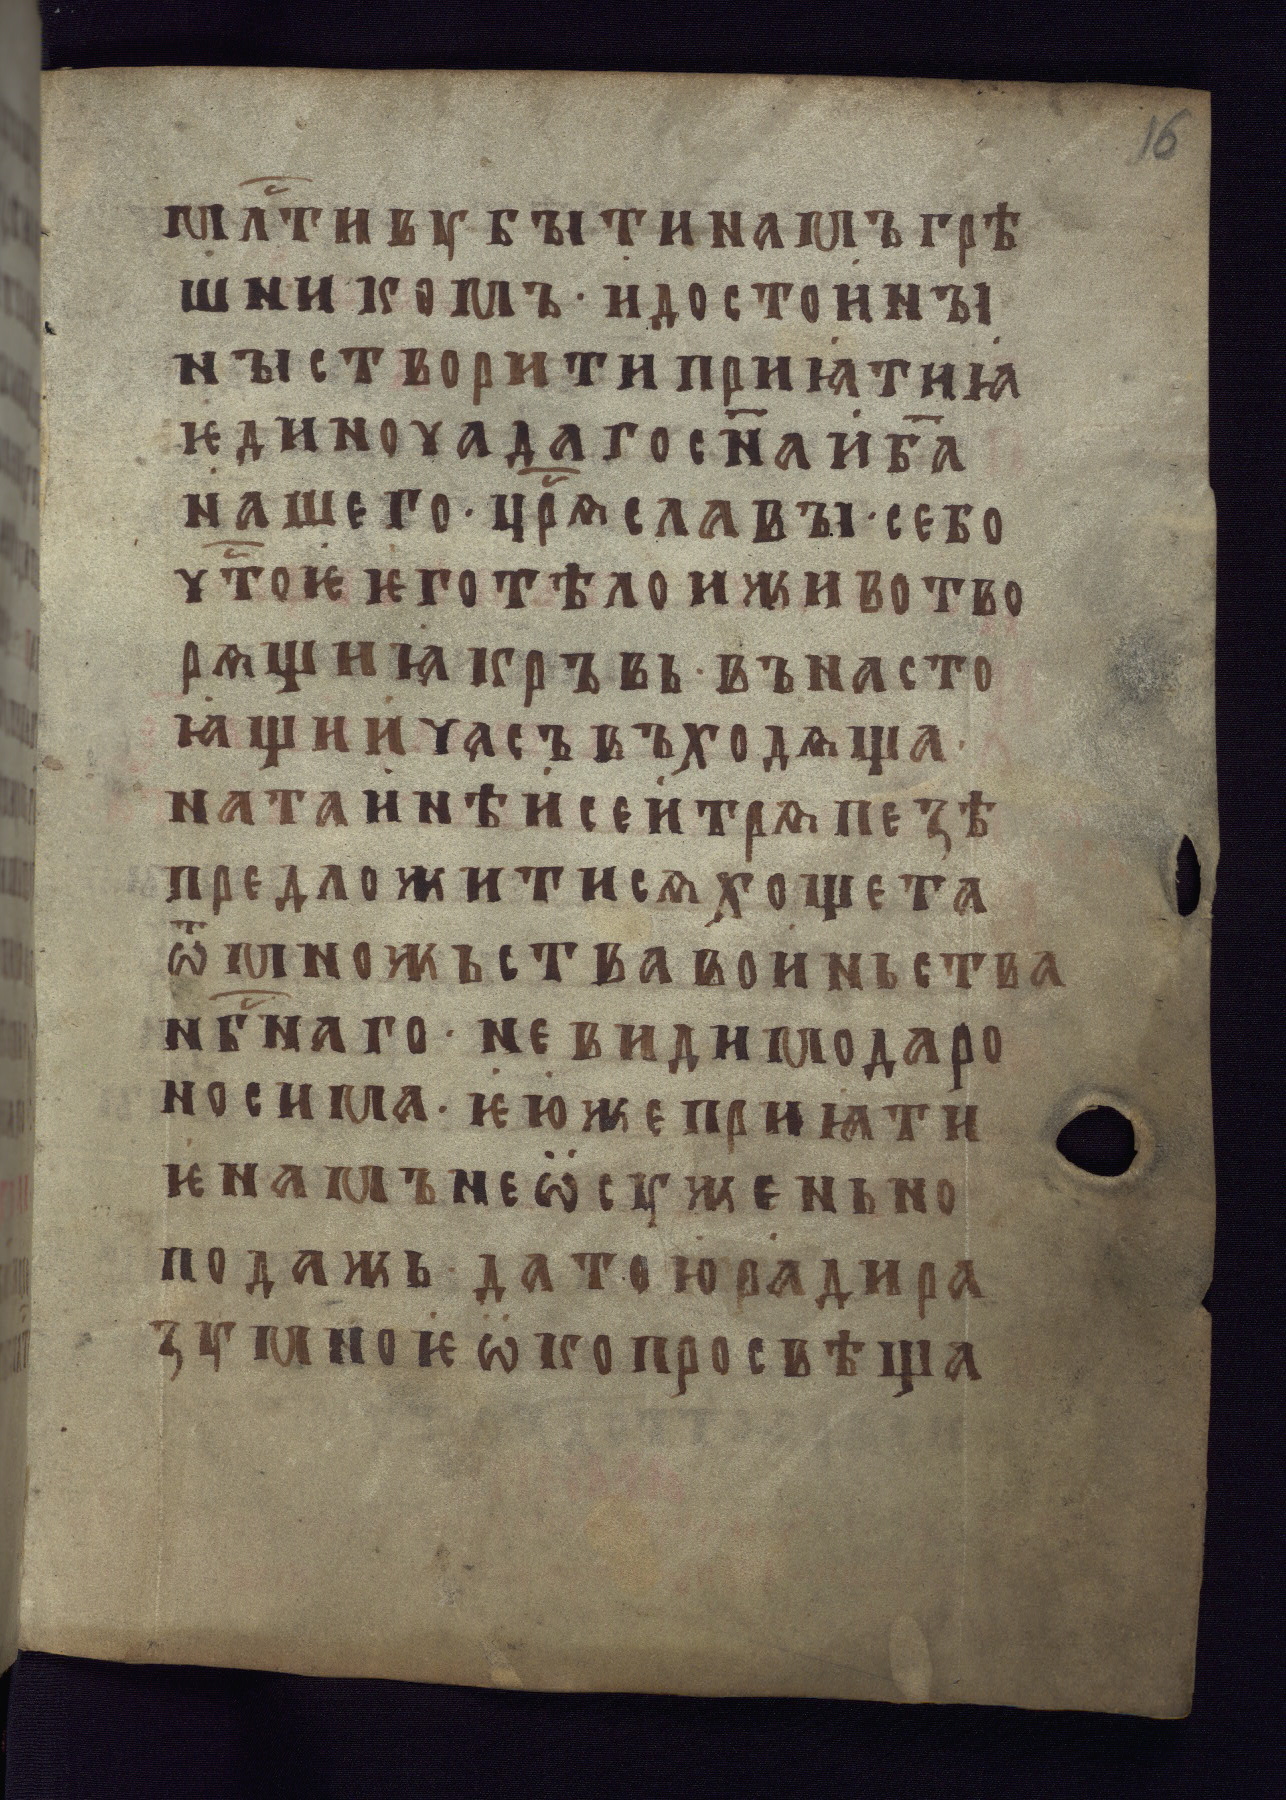 16
млⷭ҇тивꙋ бꙑти намъ грѣ
шникомъ · и достоинꙑ
нꙑ створити приꙗтиꙗ
ѥдиночадаго сн҃а и б҃а
нашего · црⷭ҇ѧ славꙑ · се бо
чⷭ҇тоѥ ѥго тѣло и животво
рѧщиꙗ кръвь · въ насто
ꙗщии часъ въходѧща ·
на таинѣи сеи трѧпезѣ
предложитисѧ хощета
ѿ множьства воиньства
нбⷭ҇наго · невидимо даро
носима · ѥюже приꙗти
ѥ намъ не ѡсꙋженьно
подажь · да тою ради ра
зꙋмноѥ ѡко просвѣща